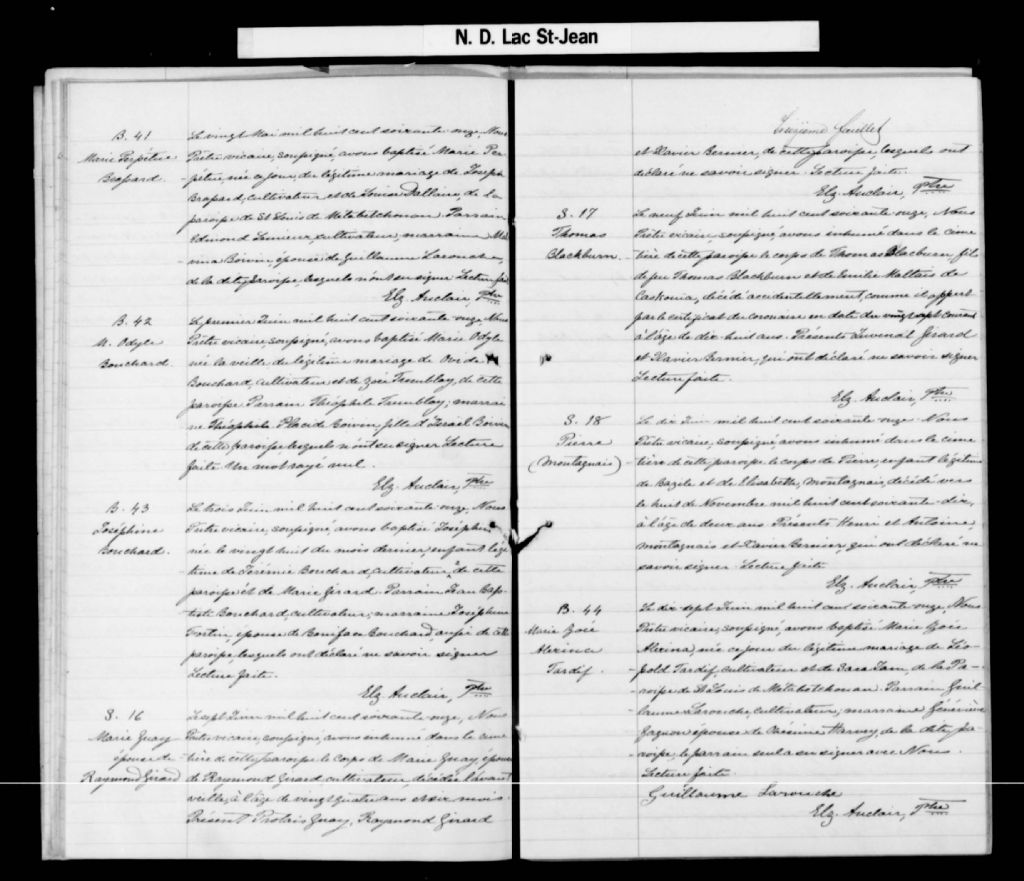 N. D. Lac St-Jean
B. 41
Marie Perpétue
Brassard.
Le vingt Mai mil huit cent soixante onze, Nous
Prêtre vicaire, soussigné, avons baptisé Marie Per
pétue, née ce jour, du légitime mariage de Joseph
Brassard, cultivateur et de Louise Dallaire, de la
paroisse de St Louis de Métabetchouan. Parrain
Edmond Lemieux, cultivateur, marraine Mal
vina Boivin, épouse de Guillaume Larouche,
de la dite paroisse, lesquels n'ont su signer. Lecture fai
Elz. Auclair, Ptre
B. 42
M. Odyle
Bouchard.
Le premier Juin mil huit cent soixante onze, Nous
Prêtre vicaire, soussigné, avons baptisé Marie Odyle
née la veille, du légitime mariage de Ovide
Bouchard, cultivateur et de Zoé Tremblay, de cette
paroisse Parrain Théophile Tremblay; marrai
ne Théophile Placide Boivin, fille d'Israël Boivin
de cette paroisse lesquels n'ont su signer Lecture
faite. Un mot rayé nul.
Elz. Auclair, Ptre
B. 43
Joséphine
Bouchard.
Le trois Juin mil huit cent soixante onze, Nous
Prêtre vicaire, soussigné, avons baptisé Joséphine
née le vingt huit du mois dernier, enfant légi
time de Jérémie Bouchard, cultivateur, de cette
paroisse et de Marie Girard Parrain Jean Bap
tiste Bouchard, cultivateur; marraine Joséphine
Fortin, épouse de Boniface Bouchard, aussi de cette
paroisse, lesquels ont déclaré ne savoir signer
Lecture faite.
Elz. Auclair, Ptre
S. 16
Marie Guay
épouse de
Raymond Girard
Le sept Juin mil huit cent soixante onze, Nous
Prêtre vicaire, soussigné, avons inhumé dans le cime
tière de cette paroisse le corps de Marie Guay, épouse
de Raymond Girard cultivateur, décédée l'avant
veille, à l'âge de vingt quatre ans et six mois.
Présent Protais Guay, Raymond Girard
Treizième feuillet
et Xavier Bernier, de cette paroisse, lesquels ont
déclaré ne savoir signer. Lecture faite.
Elz. Auclair, Ptre
S. 17
Thomas
Blackburn.
Le neuf Juin mil huit cent soixante onze, Nous
Prêtre vicaire, soussigné, avons inhumé dans le cime
tière de cette paroisse le corps de Thomas Blacburn, fils
de feu Thomas Blackburn et de Emilie Maltais de
Caskouia, décédé accidentellement, comme il appert
par le certificat du coronaire en date du vingt sept courant
à l'âge de dix-huit ans. Présents Juvenal Girard
et Xavier Bernier, qui ont déclaré ne savoir signer
Lecture faite.
Elz. Auclair, Ptre
S. 18
Pierre
(Montagnais)
Le dix Juin mil huit cent soixante onze Nous
Prêtre vicaire, soussigné, avons inhumé dans le cime
tière de cette paroisse le corps de Pierre, enfant légitime
de Bazile et de Elisabeth, Montagnais, décédé vers
le huit de Novembre mil huit cent soixante dix,
à l'âge de deux ans Présents Henri et Antoine,
montagnais et Xavier Bernier, qui ont déclaré ne
savoir signer Lecture faite
Elz. Auclair, Ptre
B. 44
Marie Zoée
Alexina
Tardif.
Le dix sept Juin mil huit cent soixante onze, Nous
Prêtre vicaire, soussigné, avons baptisé Marie Zoée
Alexina, née ce jour du légitime mariage de Léo
pold Tardif, cultivateur et de Sara Jam, de la Pa
roisse de St Louis de Métabetchouan Parrain Guil
laume Larouche, cultivateur; marraine Généviève
Gagnon épouse de Onésime Harvey, de la dite pa
roisse, le parrain seul a su signer avec Nous.
Lecture faite.
Guillaume Larouche
Elz. Auclair, Ptre